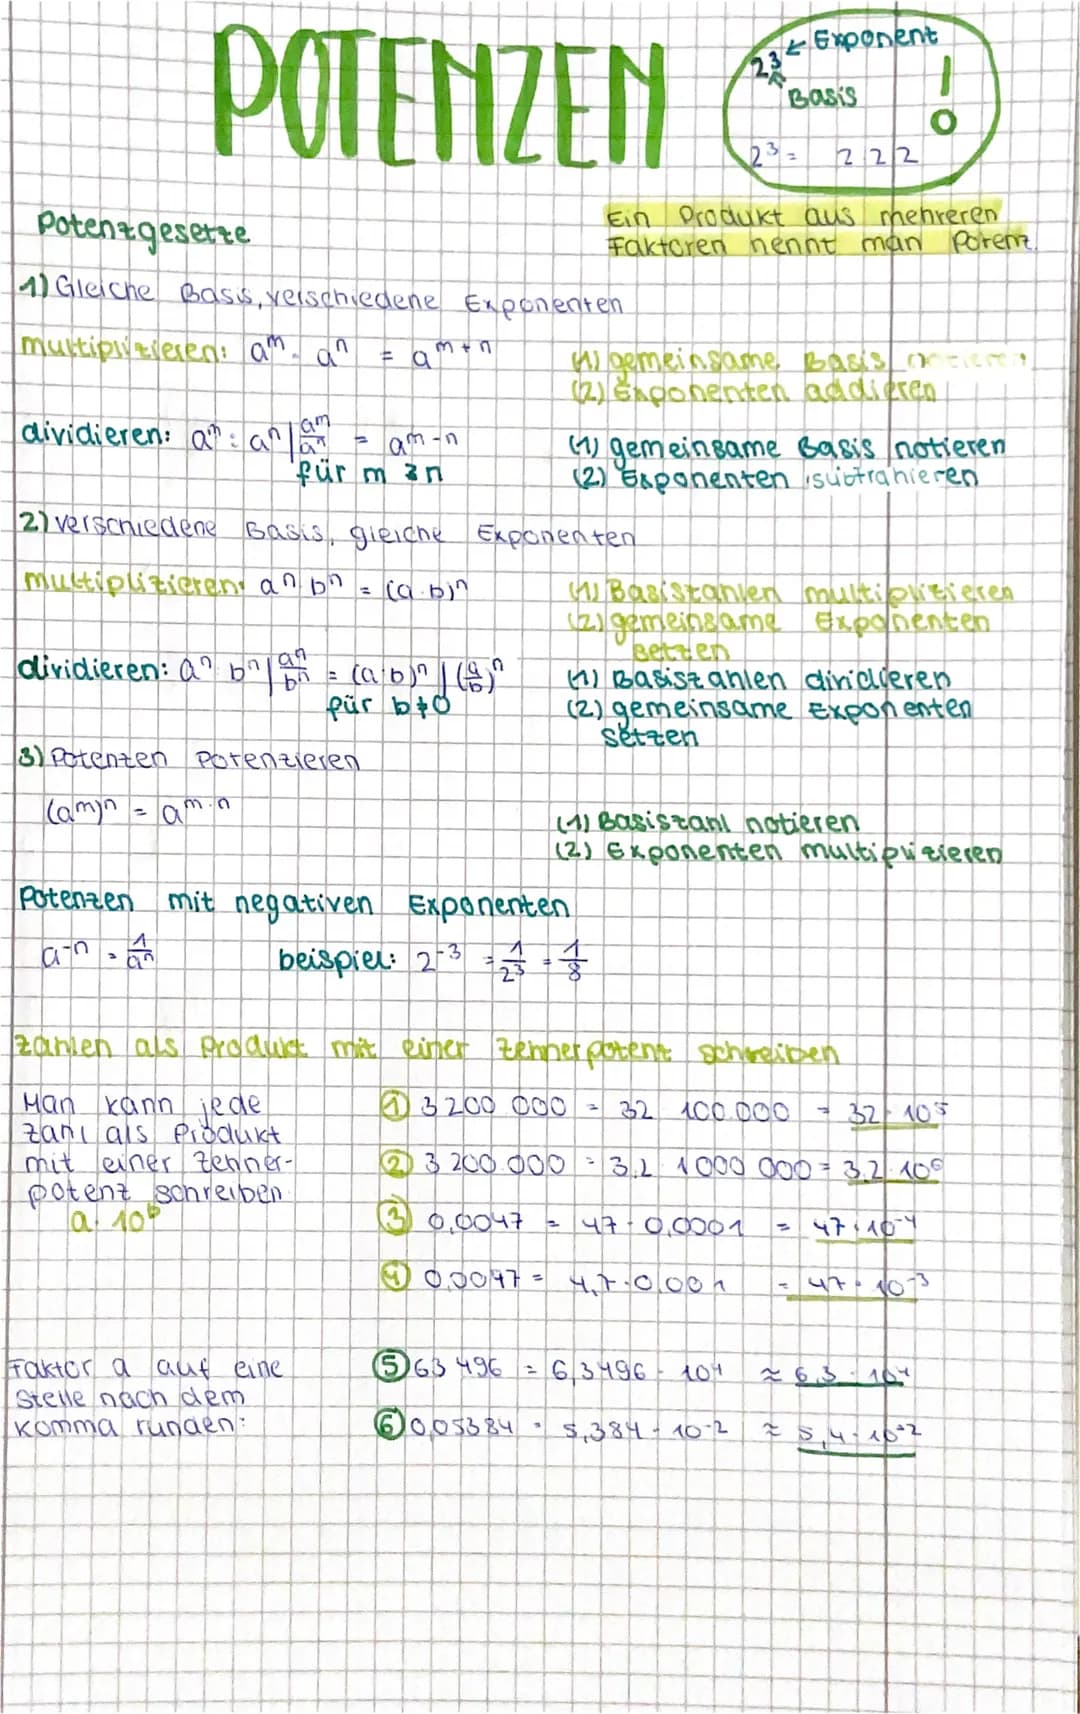 POTENZEN
2³ ← Exponent
Basis
!
2³ = 2 2 2
Ein Produkt aus mehreren
Faktoren nennt man Potenz.
Potenzgesetze
1) Gleiche Basis, verschiedene Exponenten
multiplizieren: a^m · a^n = a^m+n
(1) gemeinsame Basis notieren
(2) Exponenten addieren
dividieren: a^m : a^n | a^m/a^n = a^m-n
für m ≥ n
(1) gemeinsame Basis notieren
(2) Exponenten subtrahieren
2) verschiedene Basis, gleiche Exponenten
multiplizieren: a^n b^n = (a·b)^n
(1) Basiszahlen multiplizieren
(2) gemeinsame Exponenten
setzen
dividieren: a^n b^n | a^n/b^n = (a:b)^n | (a/b)^n
für b≠0
(1) Basiszahlen dividieren
(2) gemeinsame Exponenten
setzen
3) Potenzen Potenzieren
(a^m)^n = a^m·n
(1) Basiszahl notieren
(2) Exponenten multiplizieren
Potenzen mit negativen Exponenten
a^-n = 1/a^n beispiel: 2^-3 = 1/2³ = 1/8
Zahlen als Produkt mit einer Zehnerpotenz schreiben
Man kann jede
Zahl als Produkt
mit einer Zehner-
potenz schreiben
a· 10^b
① 3 200 000 = 32 100.000 = 32 · 10^5
② 3 200.000 = 3,2 1000 000 = 3,2 · 10^6
③ 0,0047 = 47 · 0,0001 = 47 · 10^-4
④ 0,0047 = 4,7 · 0,001 = 47 · 10^-3
Faktor a auf eine
Stelle nach dem
Komma runden:
⑤ 63 496 = 6,3496 · 10^4 ≈ 6,3 · 10^4
⑥ 0,05384 = 5,384 · 10^-2 ≈ 5,4 · 10^-2